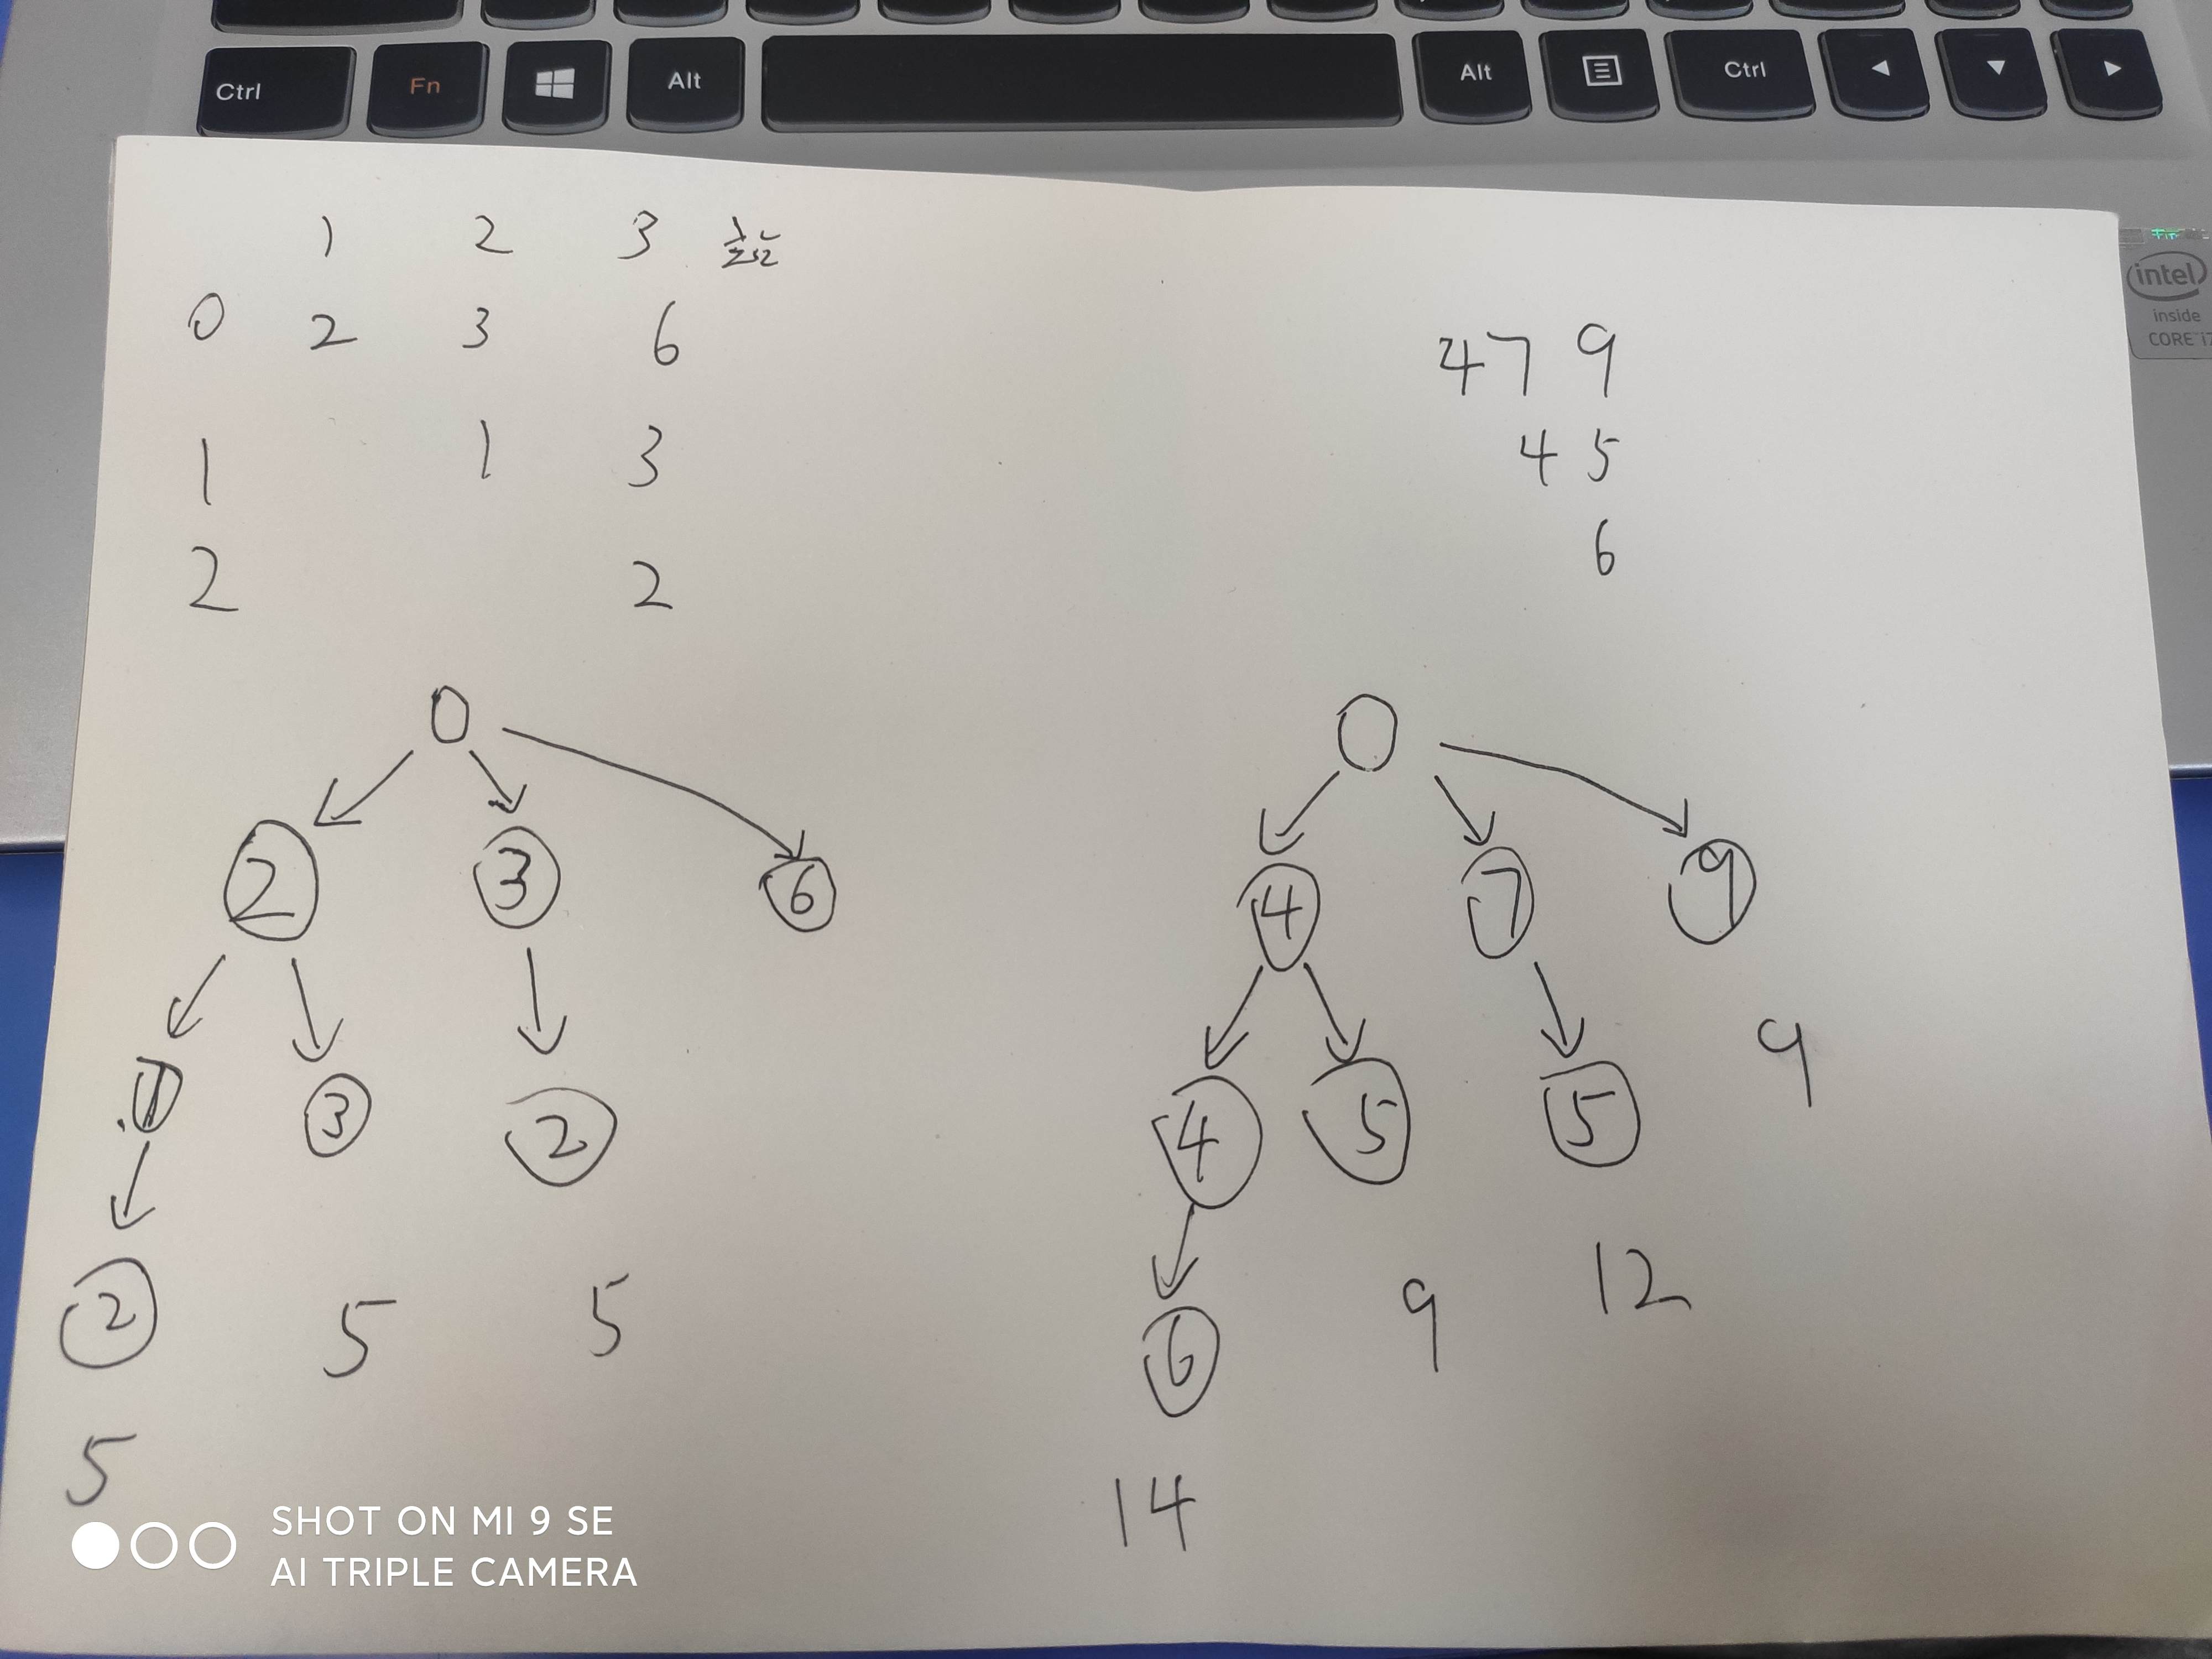 Ctrl Fn Alt Alt Ctrl
intel
inside
1 2 3 站
0 2 3 6
1 1 3
2 2
4 7 9
4 5
6
0
2 3 6
1 3 2
2
5 5
5
0
4 7 9
4 5 5
9
6
9 12
14
SHOT ON MI 9 SE
AI TRIPLE CAMERA